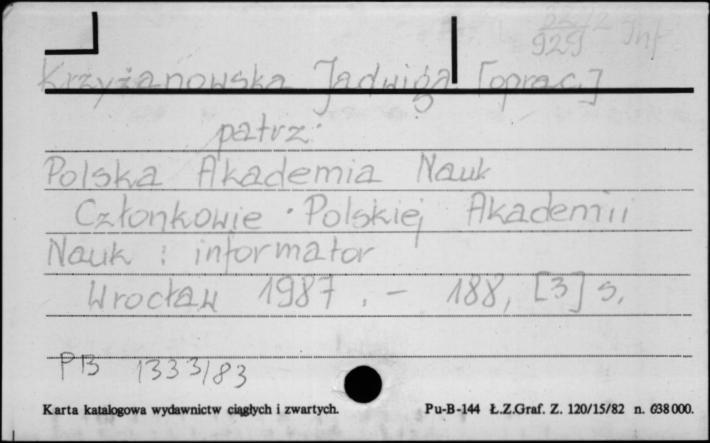 929 Inf
Krzyżanowska Jadwiga [oprac.]
patrz:
Polska Akademia Nauk
Członkowie Polskiej Akademii
Nauk : informator
Wrocław 1987. - 188, [3] s.
PB 1333/83
Karta katalogowa wydawnictw ciągłych i zwartych. Pu-B-144 Ł.Z.Graf. Z. 120/15/82 n. 638000.